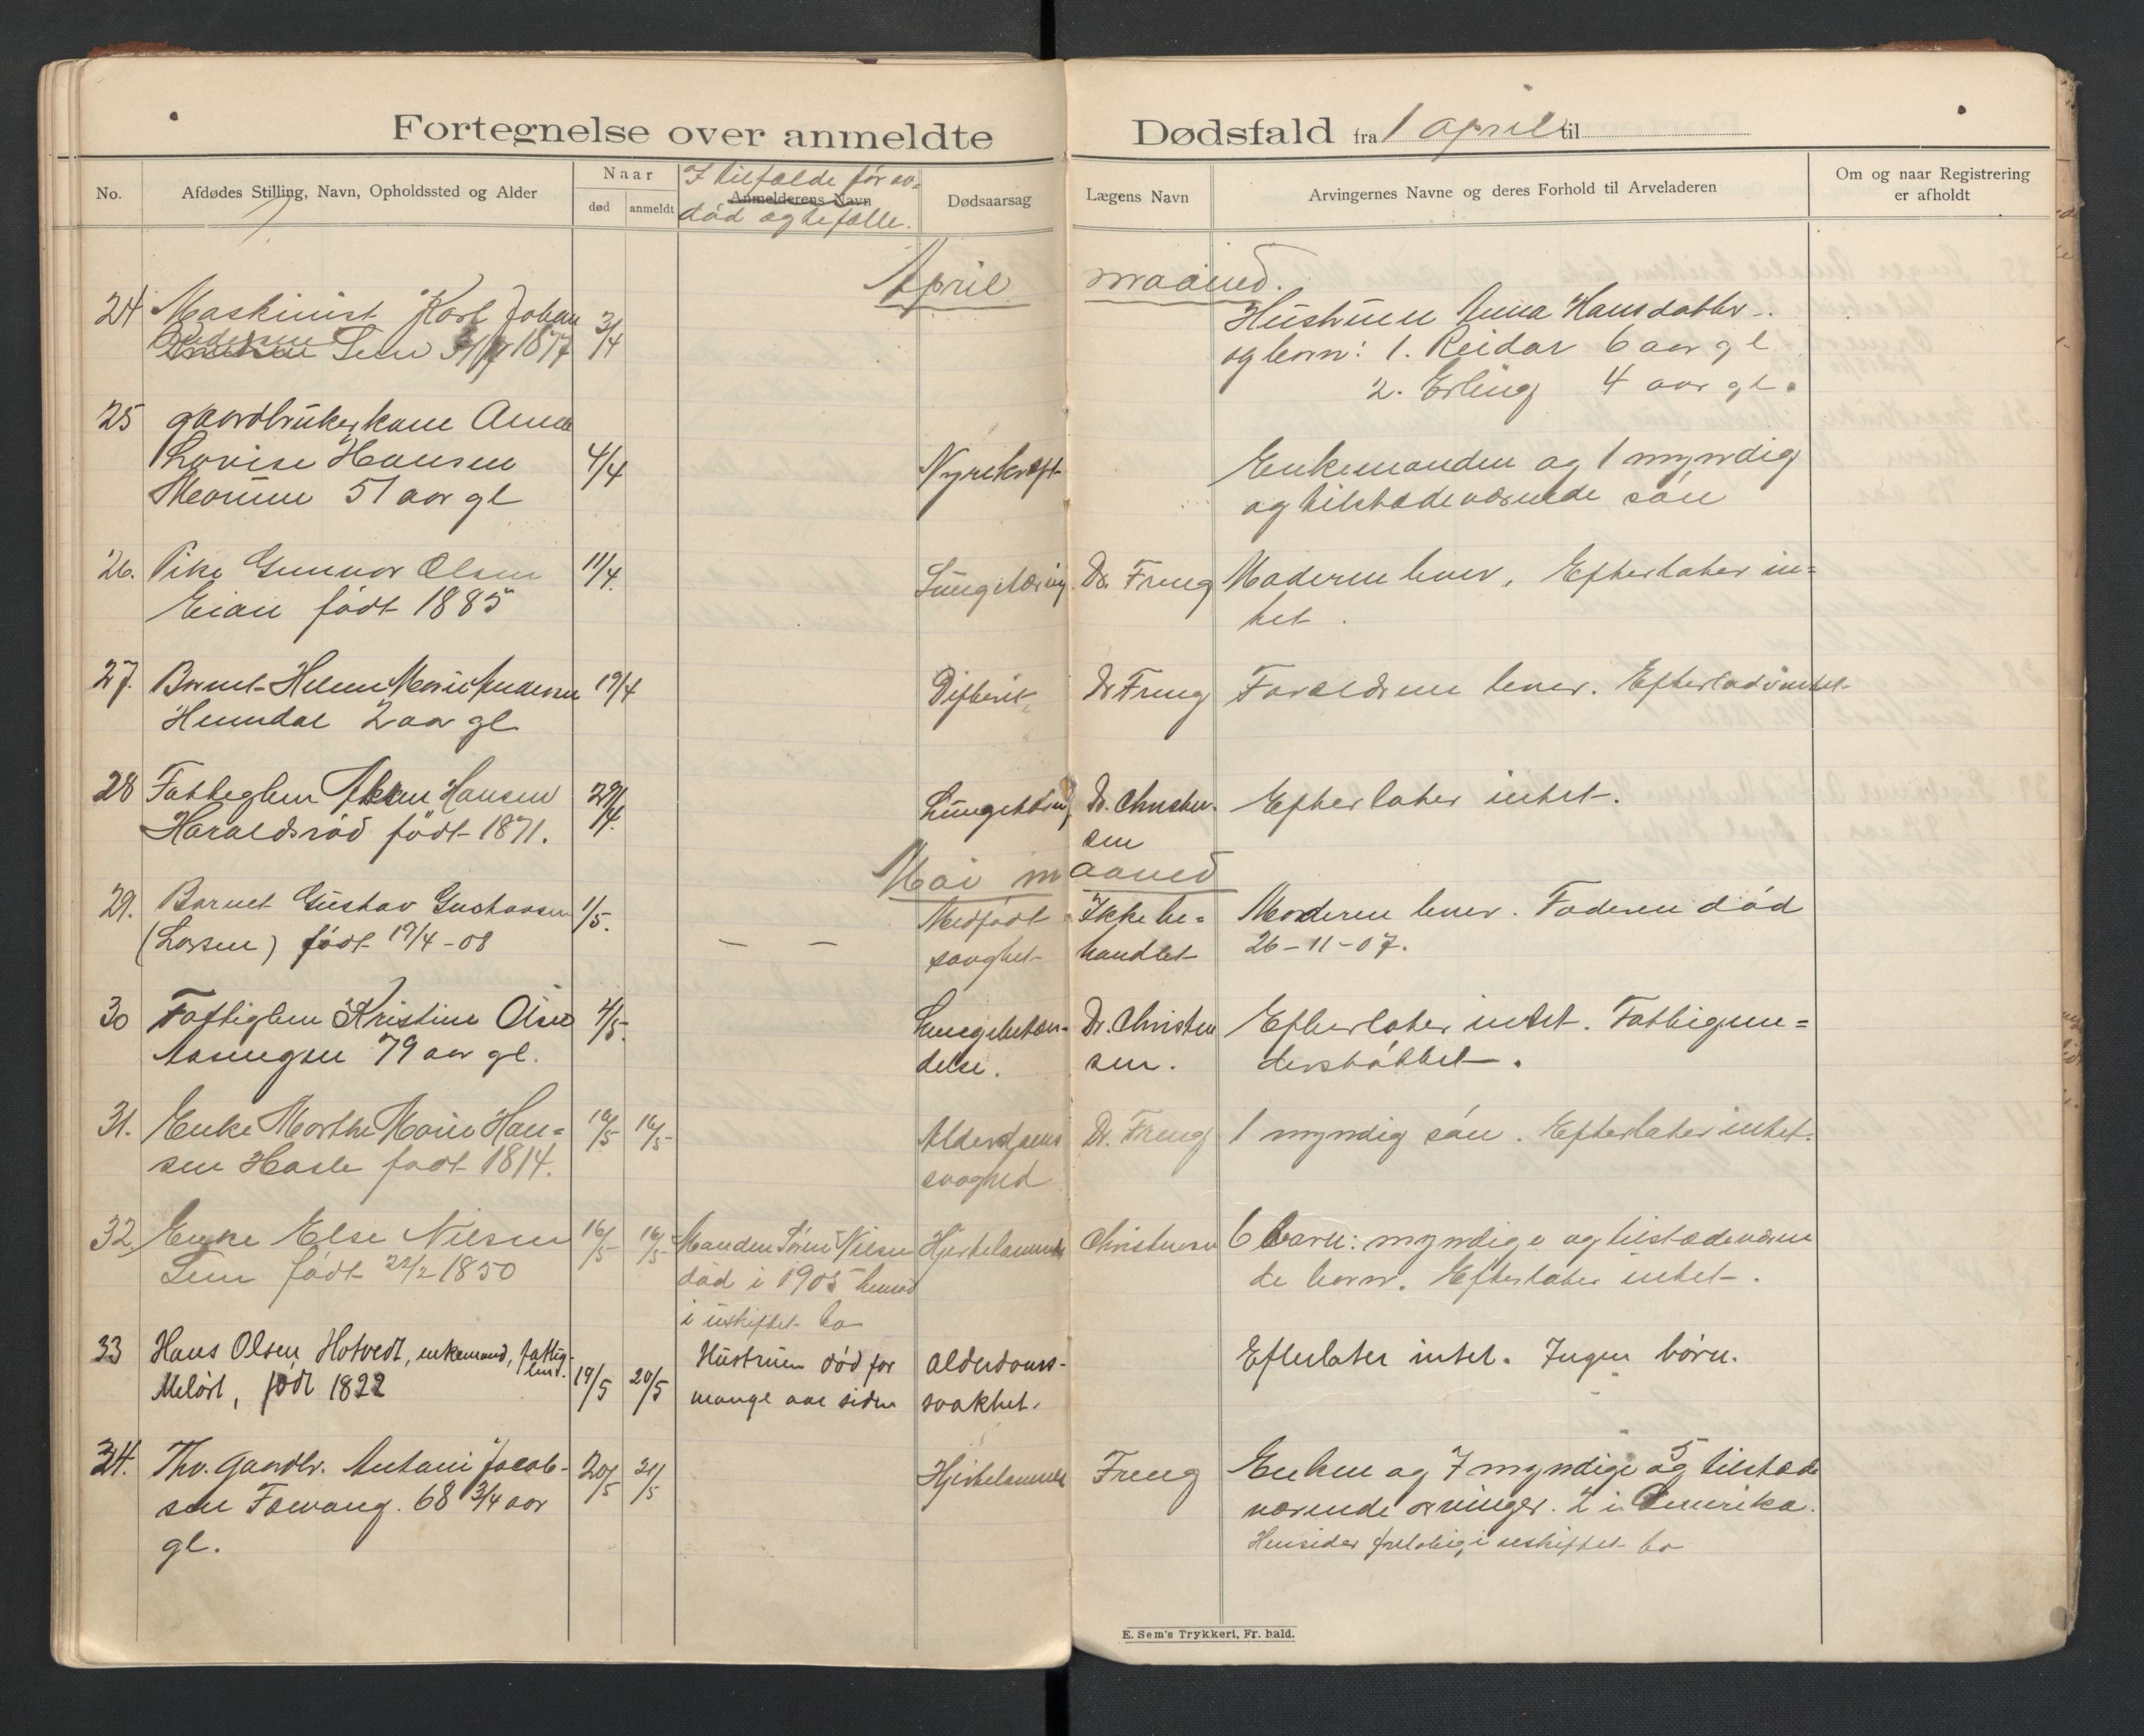 Fortegnelse over anmeldte Dødsfald fra 1 april til
No.
Afdødes Stilling, Navn, Opholdssted og Alder
Naar
død
anmeldt
I tilfælde før av-
Anmelderens Navn
død ægtefælle.
Dødsaarsag
Lægens Navn
Arvingernes Navne og deres Forhold til Arveladeren
Om og naar Registrering
er afholdt
April maaned.
24 Maskinist Karl Johan 3/4 Hustruen Anna Hansdatter
Andersen Sem 1877 og børn: 1. Reidar 6 aar gl
2. Erling 4 aar gl.
25 gaardbrukerkone Anna
Lovise Hansen 4/4 Nyrekræft Enkemanden og 1 myndig
51 aar gl og tilstedeværende søn
26. Pike Gunvor Olsen 11/4. Lungetæring Dr. Freng Moderen lever. Efterlater in=
Eian født 1885 tet.
27. Barnet Helene Marie Andersen 19/4 Difterit Dr Freng Forældrene lever. Efterlod intet
Heimdal 2 aar gl
28 Fattiglem Hansen 29/4. Lungetæring Dr. Christen- Efterlater intet.
Haraldsrød født 1871. sen
Mai maaned
29. Barnet Gustav Gustavsen 1/5. Medfødt Ikke be= Moderen lever. Faderen død
(Larsen) født 19/4-08 – – svaghet handlet 26-11-07.
30 Fattiglem Kristine Olsen 4/5. Lungebetæn- Dr. Christen Efterlater intet. Fattigun=
79 aar gl. delse. sen. derstøttet.
31. Enke Marthe Marie Han= 16/5 16/5 Alderdoms Dr. Freng 1 myndig søn. Efterlater intet.
sen Hasle født 1814. svaghed
32. Enke Else Nilsen 16/5 16/5 Manden Søren Nilsen Hjertelammelse Christensen 6 barn: myndige og tilstedeværen
Sem født 22/2 1850 død i 1905 hensad de barn. Efterlater intet.
i uskiftet bo
33 Hans Olsen Hotvedt, enkemand, fattig- 19/5 20/5 Hustruen død for alderdoms- Efterlater intet. Ingen børn.
lem.
Meløst, født 1822 mange aar siden svakhet.
34. Fhv. gaardbr. Antoni Jacob- 20/5 21/5 Hjertelammelse Freng Enken og 7 myndige og 5 tilstede
sen Fævang. 68 3/4 aar værende arvinger. 2 i Amerika.
gl. Hensider foreløbig i uskiftet bo
E. Sem's Trykkeri, Fr. hald.